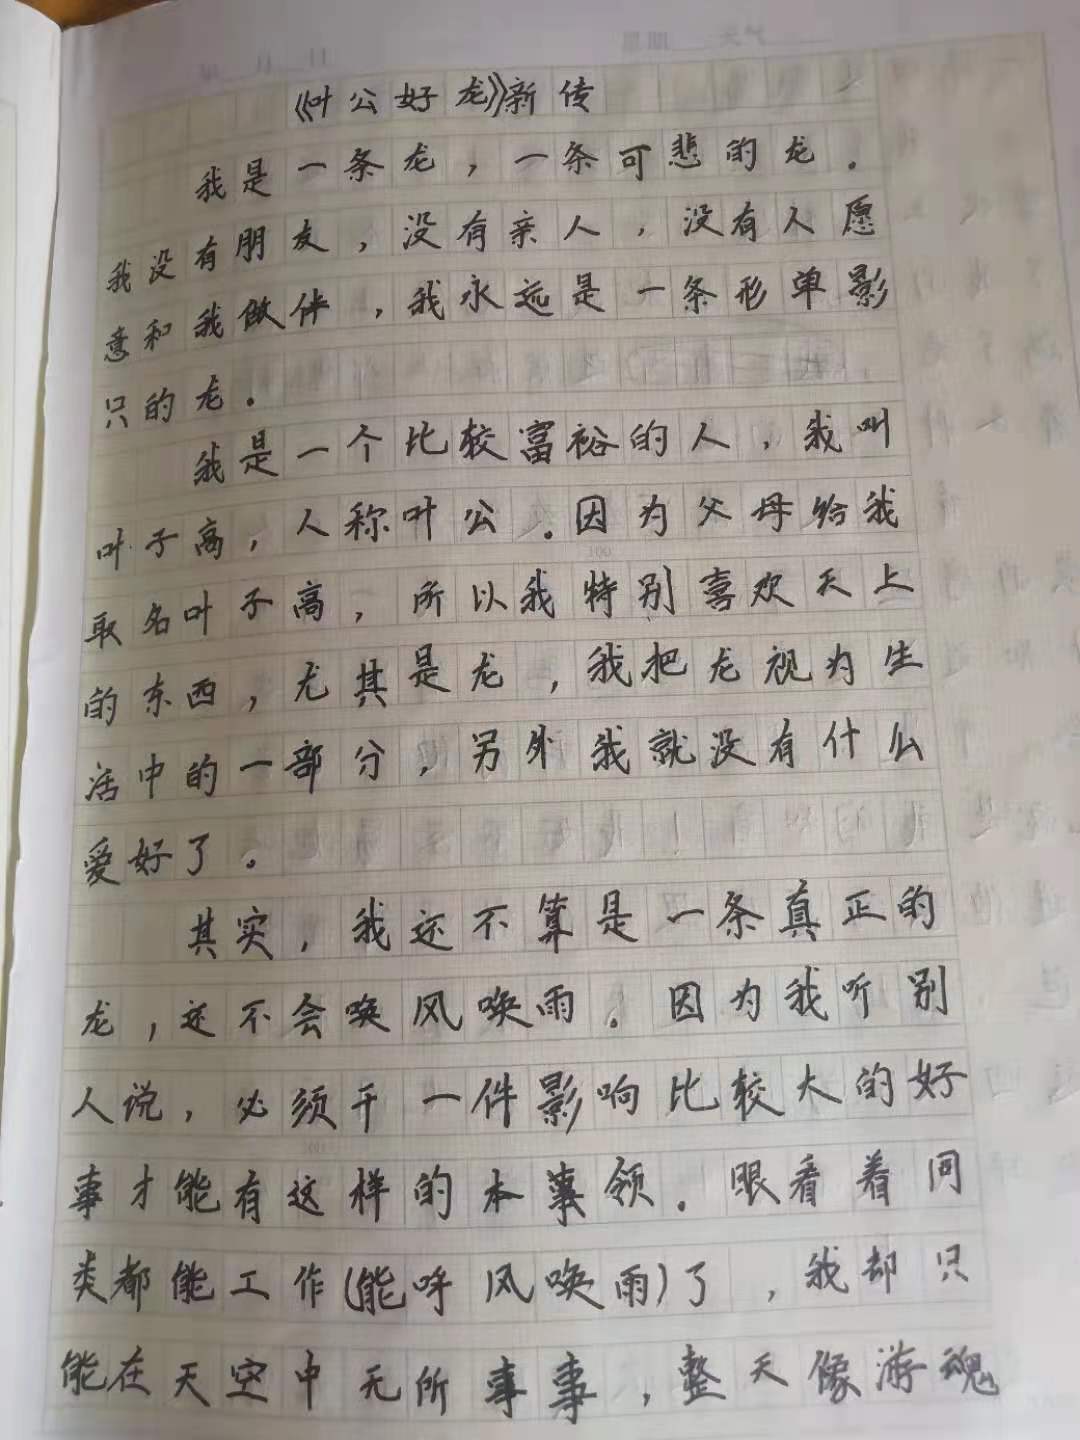 《叶公好龙》新传
我是一条龙，一条可悲的龙.
我没有朋友，没有亲人，没有人愿
意和我做伴，我永远是一条形单影
只的龙.
我是一个比较富裕的人，我叫
叶子高，人称叶公.因为父母给我
取名叶子高，所以我特别喜欢天上
的东西，尤其是龙，我把龙视为生
活中的一部分，另外我就没有什么
爱好了.
其实，我还不算是一条真正的
龙，还不会唤风唤雨.因为我听别
人说，必须干一件影响比较大的好
事才能有这样的本领.眼看着同
类都能工作(能呼风唤雨)了，我却只
能在天空中无所事事，整天像游魂